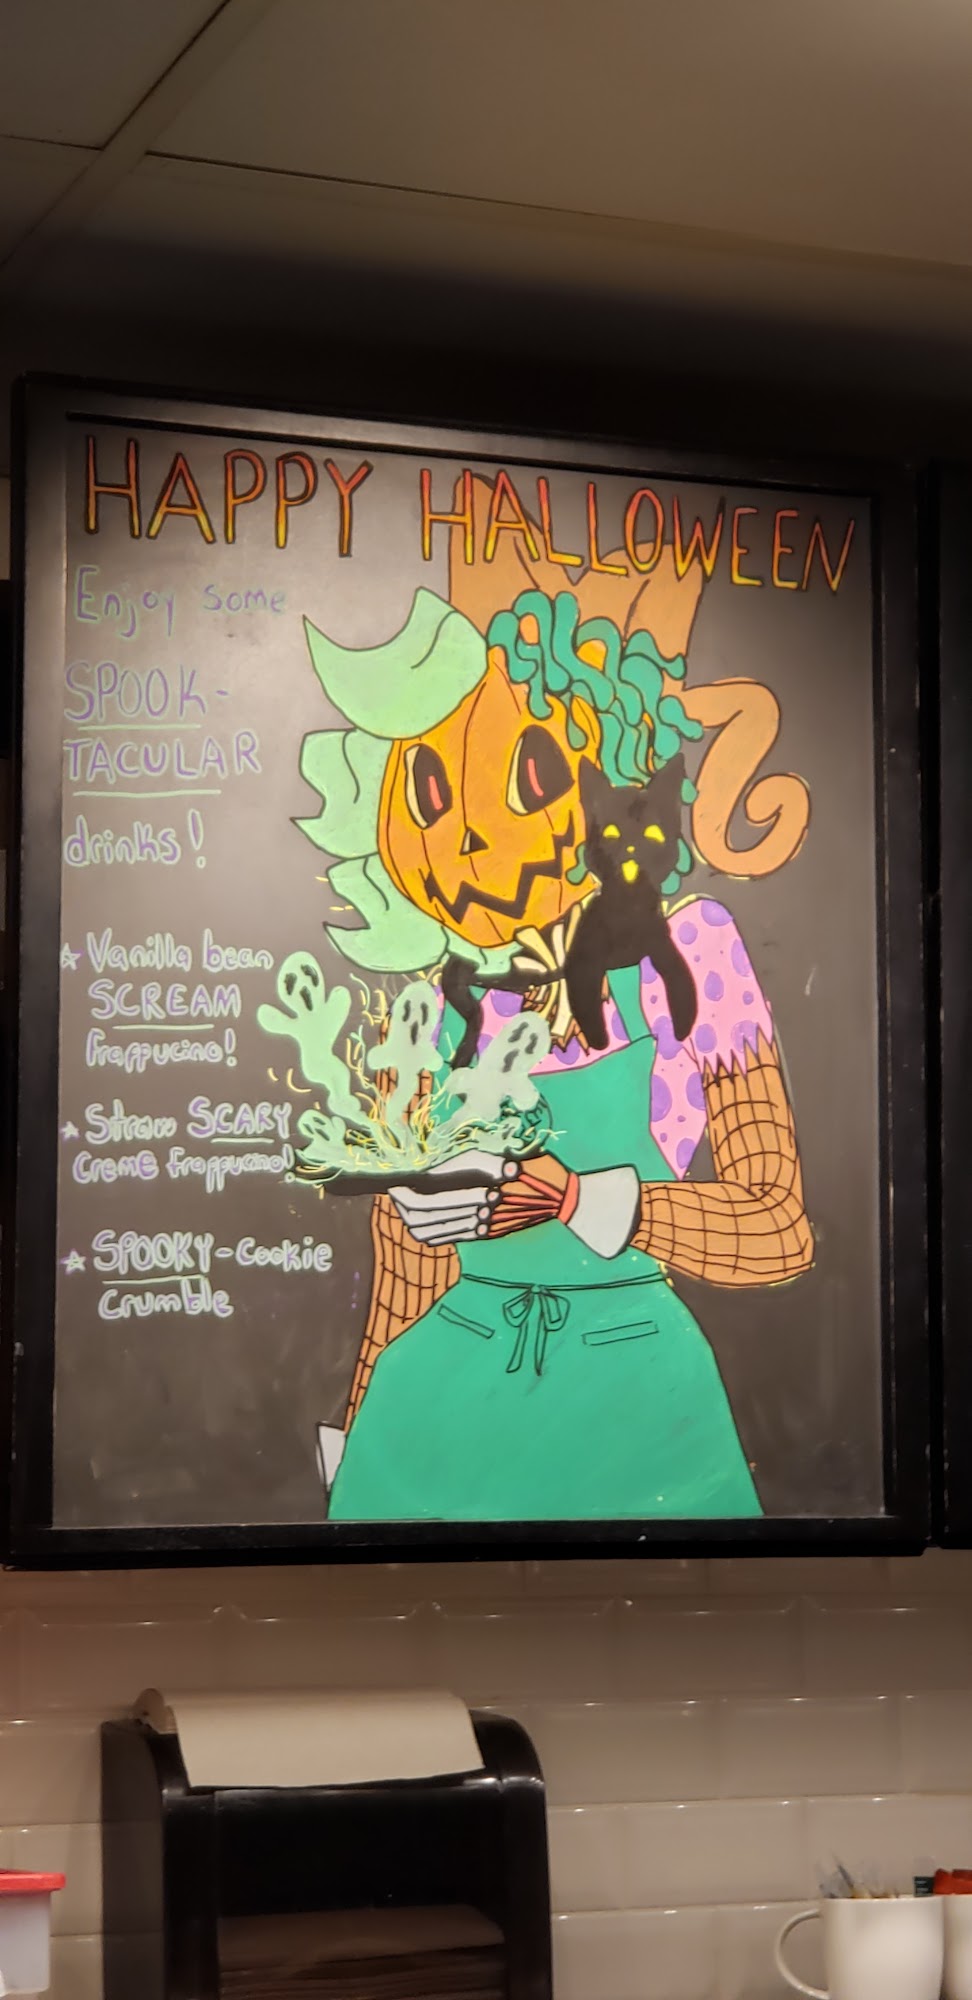 HAPPY HALLOWEEN
Enjoy some
SPOOK-
TACULAR
drinks!
☆ Vanilla bean
SCREAM
frappucino!
☆ Straw SCARY
Creme frappucino!
☆ SPOOKY-Cookie
Crumble